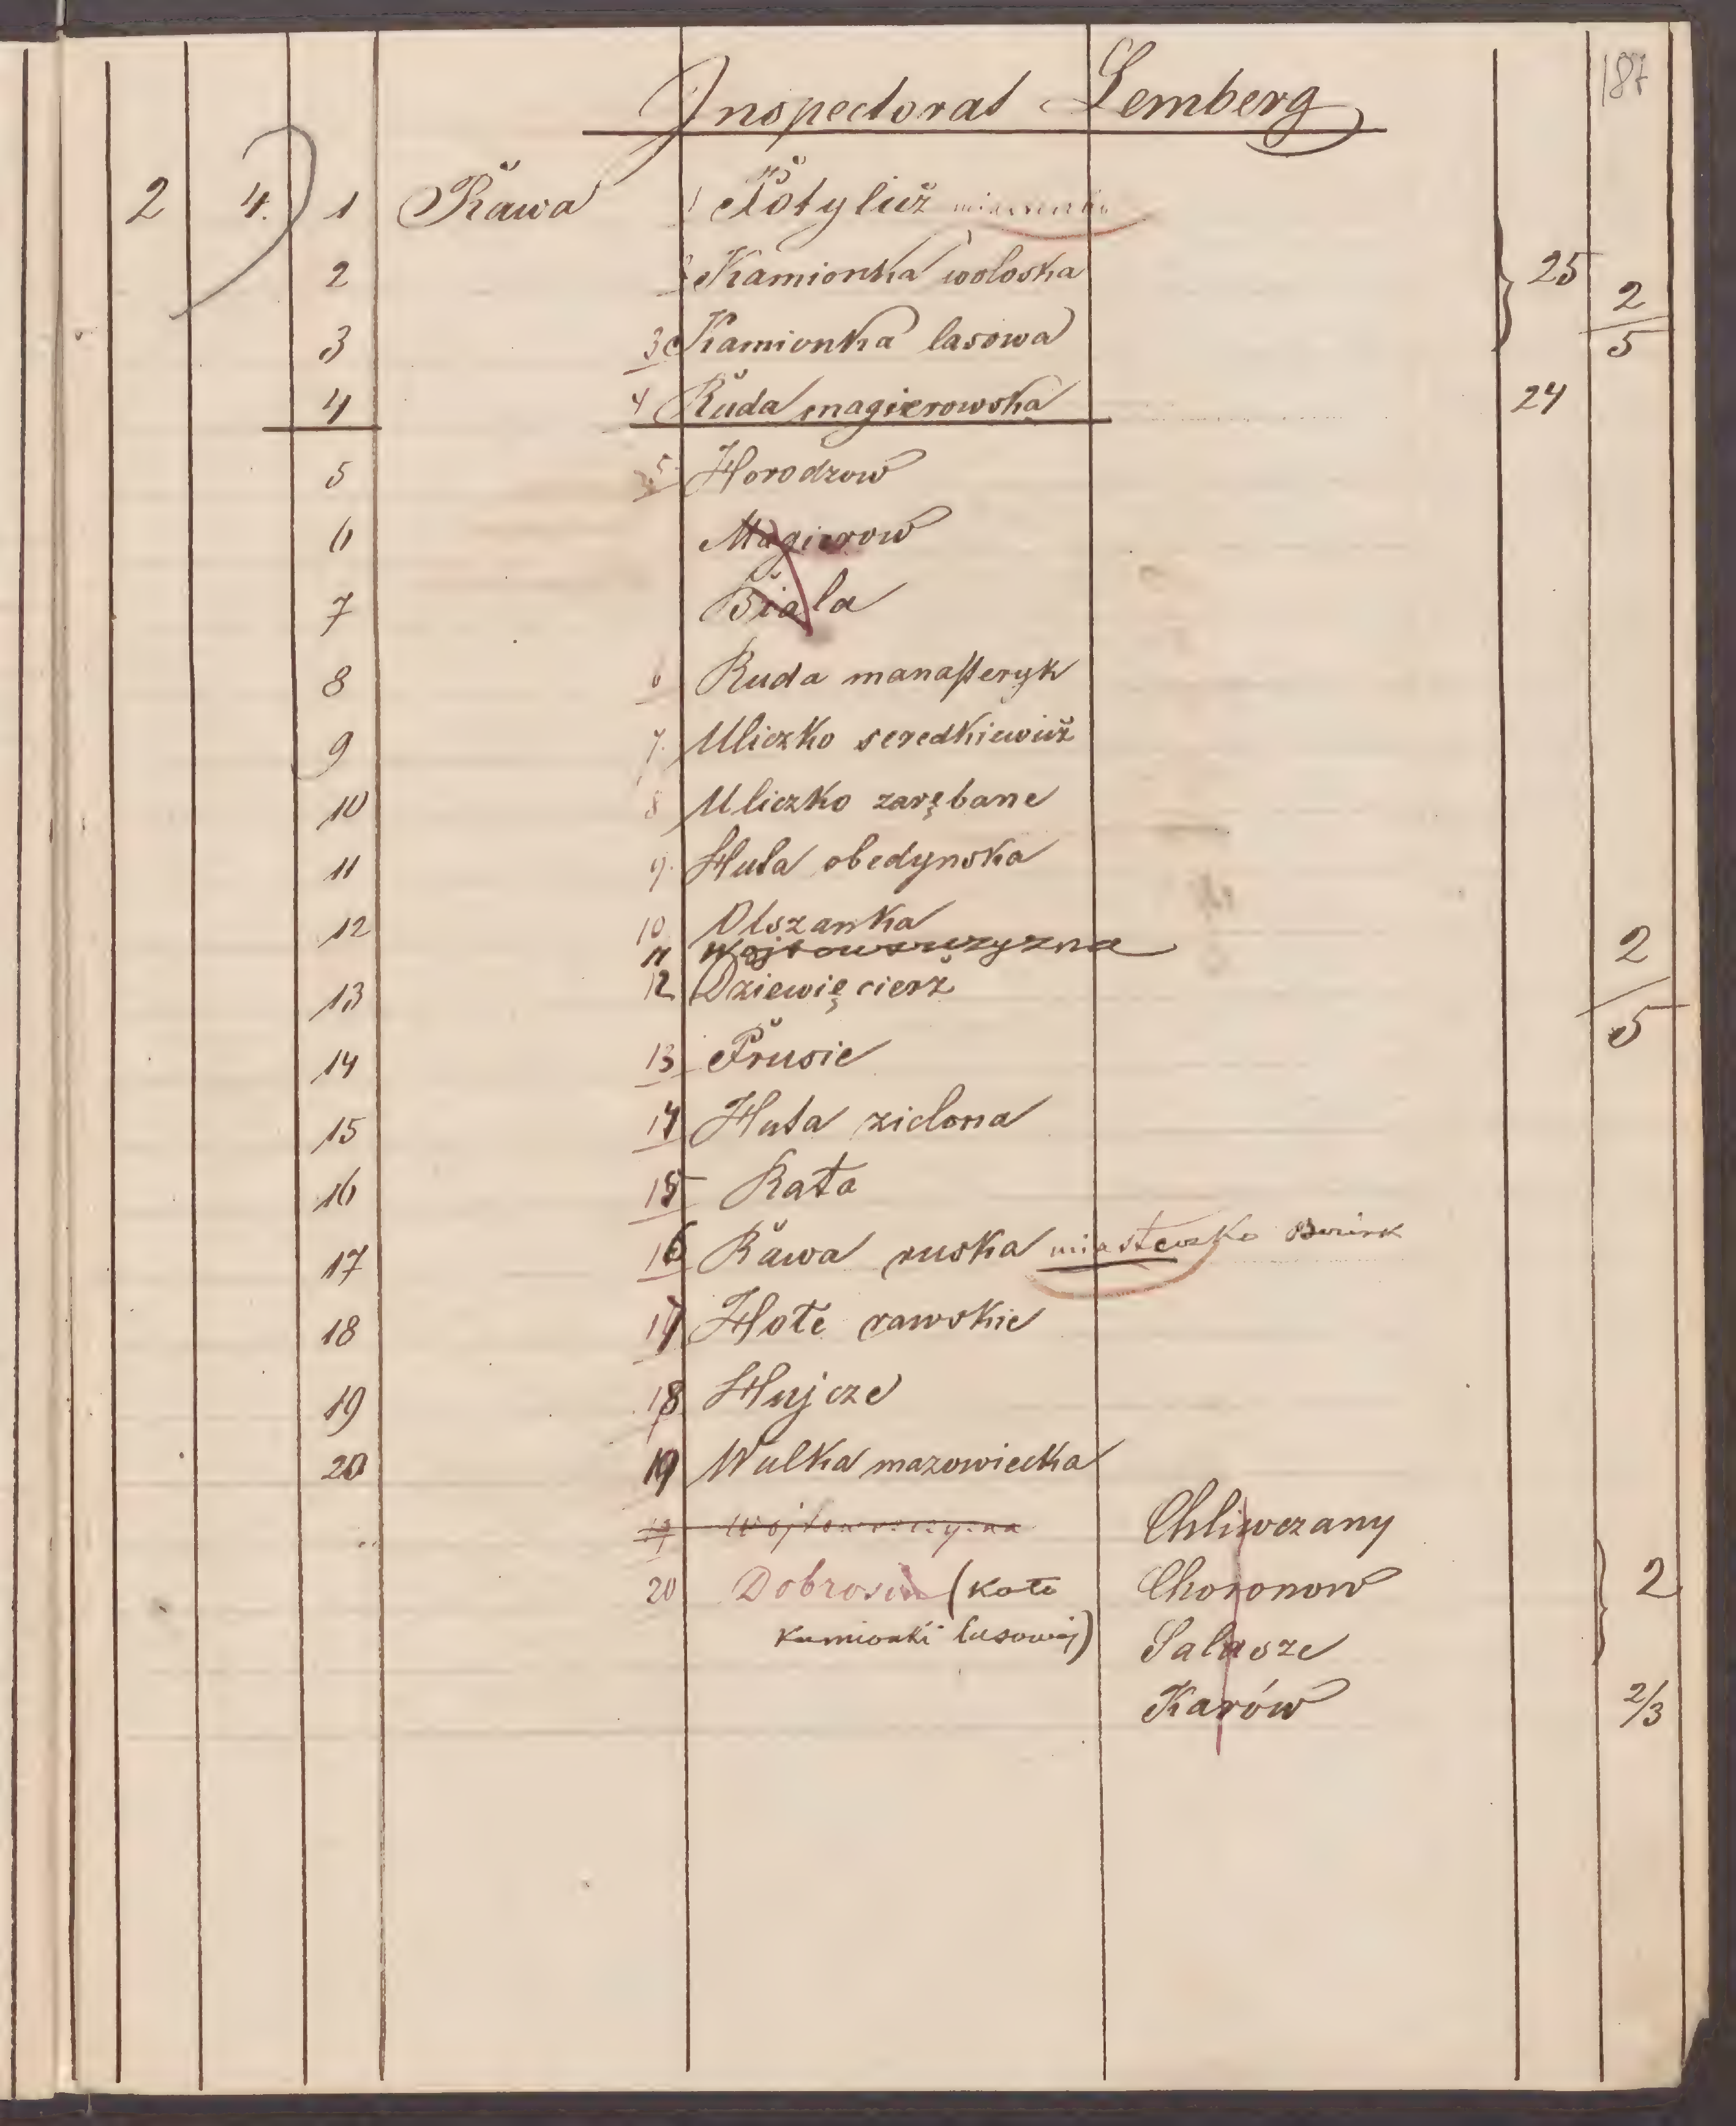 187
Inspectorat Lemberg
2 4. 1 Rawa 1 Potylicz miasteczko
2 2 Kamionka woloska 25 2/5
3 3 Kamionka lasowa
4 4 Ruda magierowska 24
5 5 Horodzow
6 Magierow
7 Biala
8 6 Ruda manasteryk
9 7. Uliczko seredkiewicz
10 8 Uliczko zarębane
11 9. Huta obedynska
12 10 Olszanka
11 Wojtowszczyzna 2/5
13 12 Dziewięcierz
14 13 Prusie
15 14 Huta zielona
16 15 Rata
17 16 Rawa ruska miasteczko
18 17 Hołe rawskie
19 18 Hujcze
20 19 Wulka mazowiecka
19 Wojtowszczyzna Chliwczany
20 Dobrosin (koło Choronow 2
kamionki lasowej) Salasze
Karów 2/3